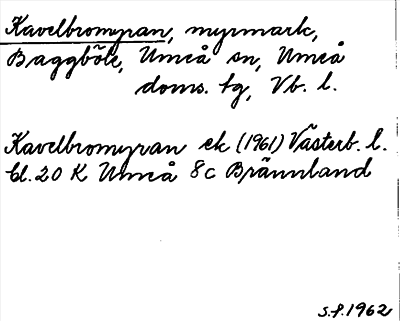 Kavelbromyran, myrmark,
Baggböle, Umeå sn, Umeå
doms. tg, Vb. l.
Kavelbromyran ek (1961) Västerb. l.
bl. 20 K Umeå 8c Brännland
s.f. 1962